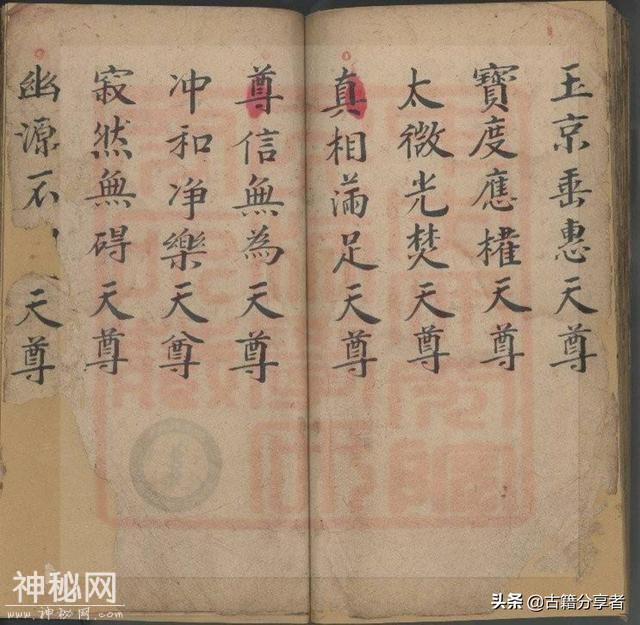 玉京垂惠天尊
寶度應權天尊
太微光梵天尊
真相滿足天尊
尊信無為天尊
冲和净樂天尊
寂然無碍天尊
幽源不天尊
神秘网
www.神秘网.COM
头条 @古籍分享者